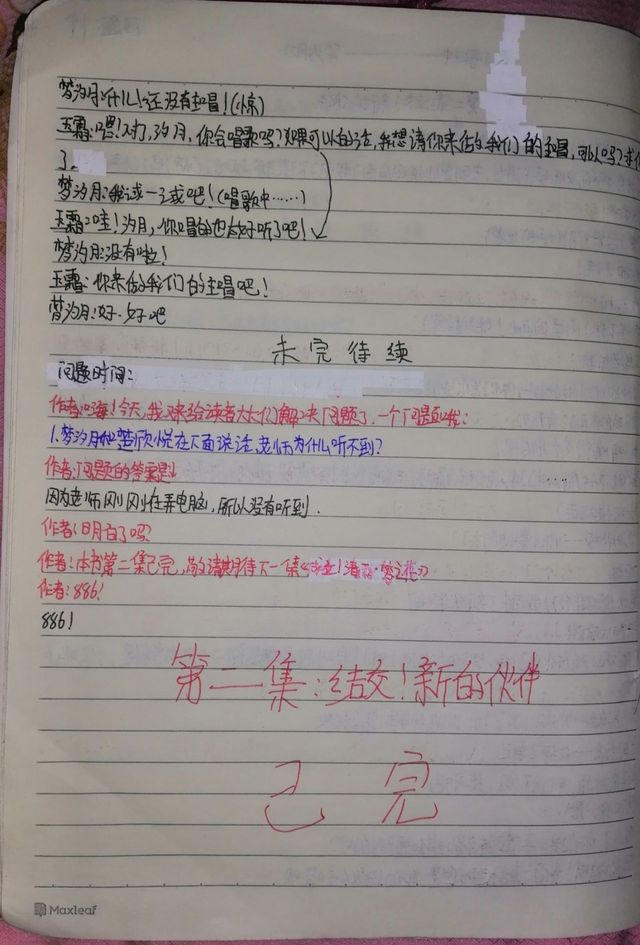 梦汐月:什么!还没有主唱!(惊)
玉霜:嗯!对,汐月,你会唱歌吗?如果可以的话,我想请你来做我们的主唱,可以吗?求你
了.
梦汐月:我试一试吧!(唱歌中……)
玉霜:哇!汐月,你唱的也太好听了吧!
梦汐月:没有啦!
玉霜:你来做我们的主唱吧!
梦汐月:好.好吧
未完待续
问题时间:
作者:嗨!今天,我又来给读者大大们解决问题了,一个问题哦:
1.梦汐月和楚欣悦在下面说话,老师为什么听不到?
作者:问题的答案是:
因为老师刚刚在弄电脑,所以没有听到.
作者:明白了吗?
作者:本书第二集已完,敬请期待下一集
作者:886!
886!
第二集:结交!新的伙伴
已 完
Maxleaf